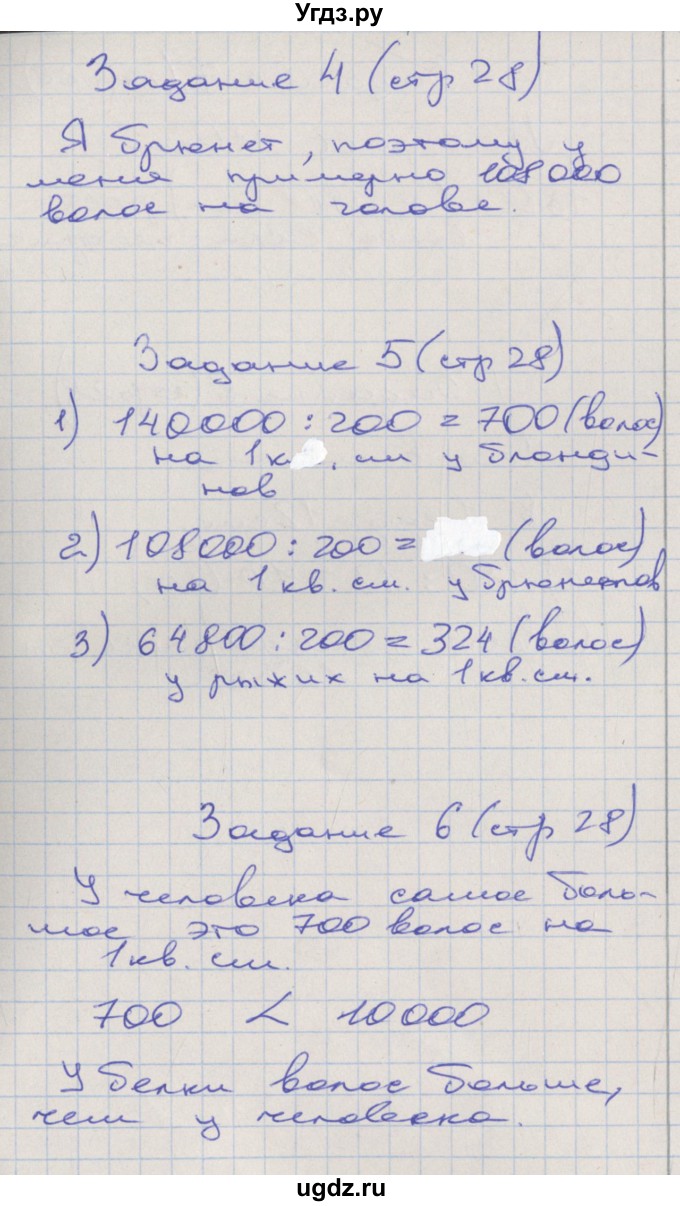 Угдз.ру
Задание 4 (стр 28)
Я брюнет, поэтому у
меня примерно 108000
волос на голове.
Задание 5 (стр 28)
1) 140000 : 200 = 700 (волос)
на 1к . см у блонди-
нов
2) 108000 : 200 = (волос)
на 1 кв. см. у брюнетов
3) 64800 : 200 = 324 (волос)
у рыжих на 1 кв. см.
Задание 6 (стр 28)
У человека самое боль-
шое это 700 волос на
1 кв. см.
700 < 10000
У белки волос больше,
чем у человека.
ugdz.ru